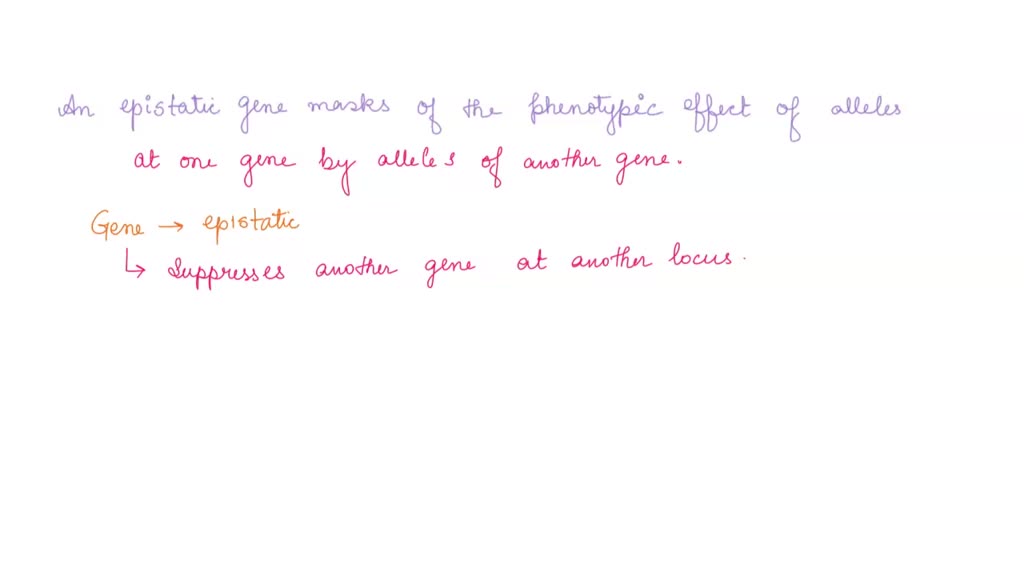 An epistatic gene masks of the phenotypic effect of alleles
at one gene by alleles of another gene.
Gene → epistatic
↳ Suppresses another gene at another locus.